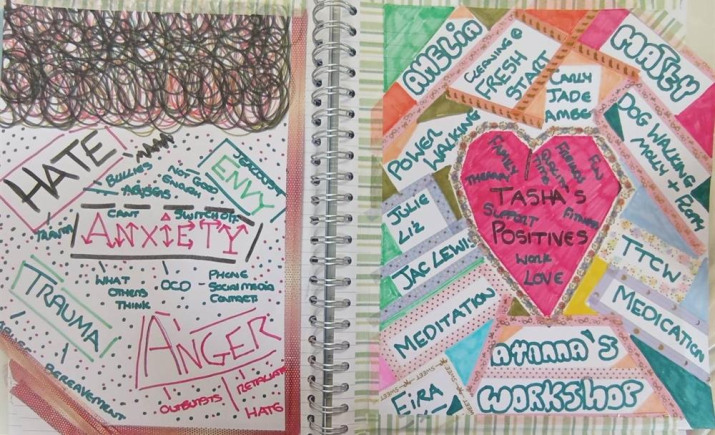 HATE
BULLIES
ABUSERS
NOT GOOD
ENOUGH
JEALOUSY
ENVY
CANT
SWITCH OFF
ANXIETY
WHAT
OTHERS
THINK
OCD
PHONE
SOCIAL MEDIA
CONTACTS
TRAUMA
BEREAVEMENT
ANGER
OUTBURSTS
RETALIATE
HATE
AMELIA
CLEANING
FRESH
START
CARLY
JADE
AMBER
MATEY
DOG WALKING
MOLLY +
POWER
WALKING
JULIE
LIZ
JAC LEWIS
MEDITATION
EIRA
FAMILY
FRIENDS
FUN
THERAPY
TASHA'S
SUPPORT
FITNESS
POSITIVES
WORK
LOVE
TTCW
MEDICATION
AYANNA'S
WORKSHOP